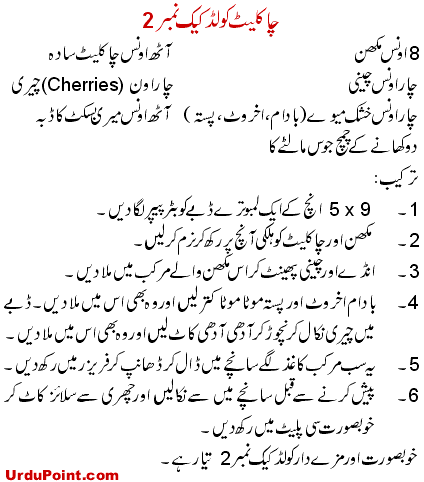 چاکلیٹ کولڈ کیک نمبر 2
8 اونس مکھن آٹھ اونس چاکلیٹ سادہ
چار اونس چینی چار اون (Cherries) چیری
چار اونس خشک میوے (بادام، اخروٹ، پستہ) آٹھ اونس میری بسکٹ کا ڈبہ
دو کھانے کے چمچ جوس مالٹے کا
ترکیب:
1۔ 9 x 5 انچ کے ایک لمبوترے ڈبے کو بٹر پیپر لگا دیں۔
2۔ مکھن اور چاکلیٹ کو ہلکی آنچ پر رکھ کر نرم کر لیں۔
3۔ انڈے اور چینی پھینٹ کر اس مکھن والے مرکب میں ملا دیں۔
4۔ بادام اخروٹ اور پستہ موٹا موٹا کتر لیں اور وہ بھی اس میں ملا دیں۔ ڈبے
میں چیری نکال کر نچوڑ کر آدھی آدھی کاٹ لیں اور وہ بھی اس میں ملا دیں۔
5۔ یہ سب مرکب کاغذ لگے سانچے میں ڈال کر ڈھانپ کر فریزر میں رکھ دیں۔
6۔ پیش کرنے سے قبل سانچے میں سے نکالیں اور چھری سے سلائز کاٹ کر
خوبصورت سی پلیٹ میں رکھ دیں۔
خوبصورت اور مزے دار کولڈ کیک نمبر 2 تیار ہے۔
UrduPoint.com